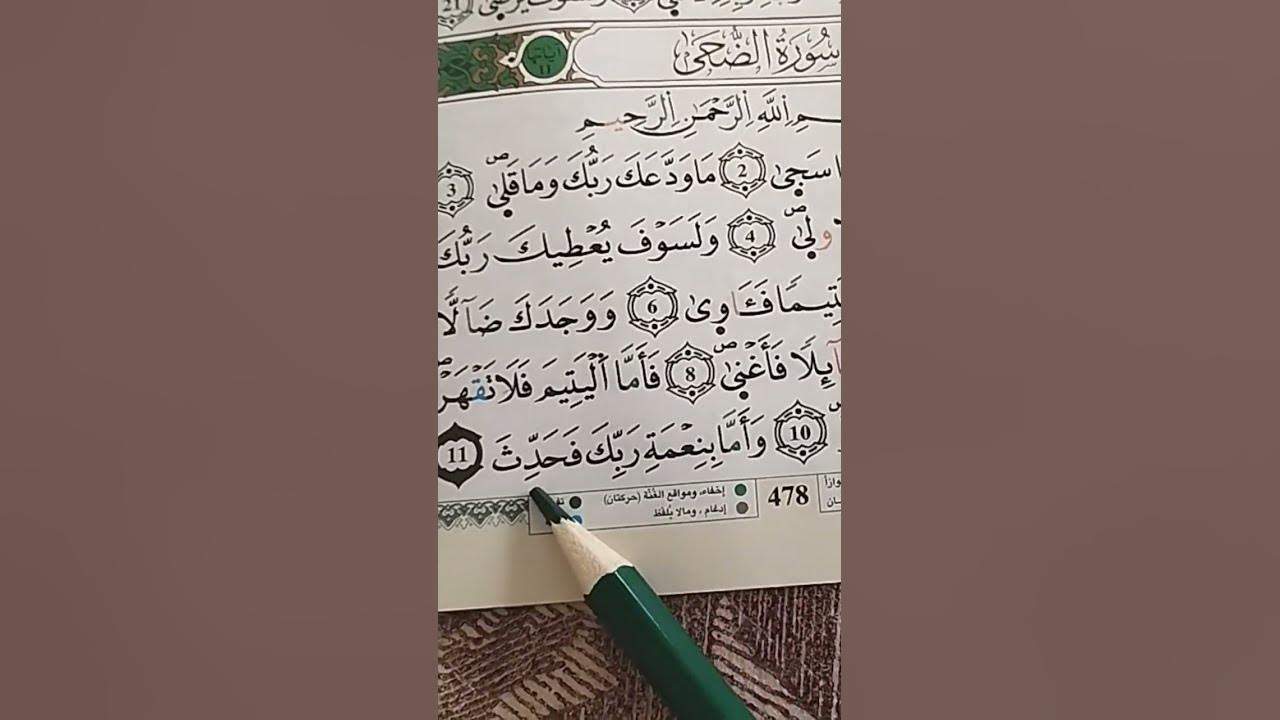 21
سُورَةُ الضُّحَىٰ
آياتها
11
اِللَّهِ اِلرَّحْمَٰنِ اِلرَّحِيمِ
سَجىٰ 2 مَا وَدَّعَكَ رَبُّكَ وَمَا قَلىٰ 3
4 وَلَسَوْفَ يُعْطِيكَ رَبُّكَ
فَـَٔاوىٰ 6 وَوَجَدَكَ ضَآلّٗا
فَأَغْنىٰ 8 فَأَمَّا اَلْيَتِيمَ فَلَا تَقْهَرْ
10 وَأَمَّا بِنِعْمَةِ رَبِّكَ فَحَدِّثْ 11
478
إخفاء، ومواقع الغُنّة (حركتان)
إدغام ، ومالا يُلفَظ